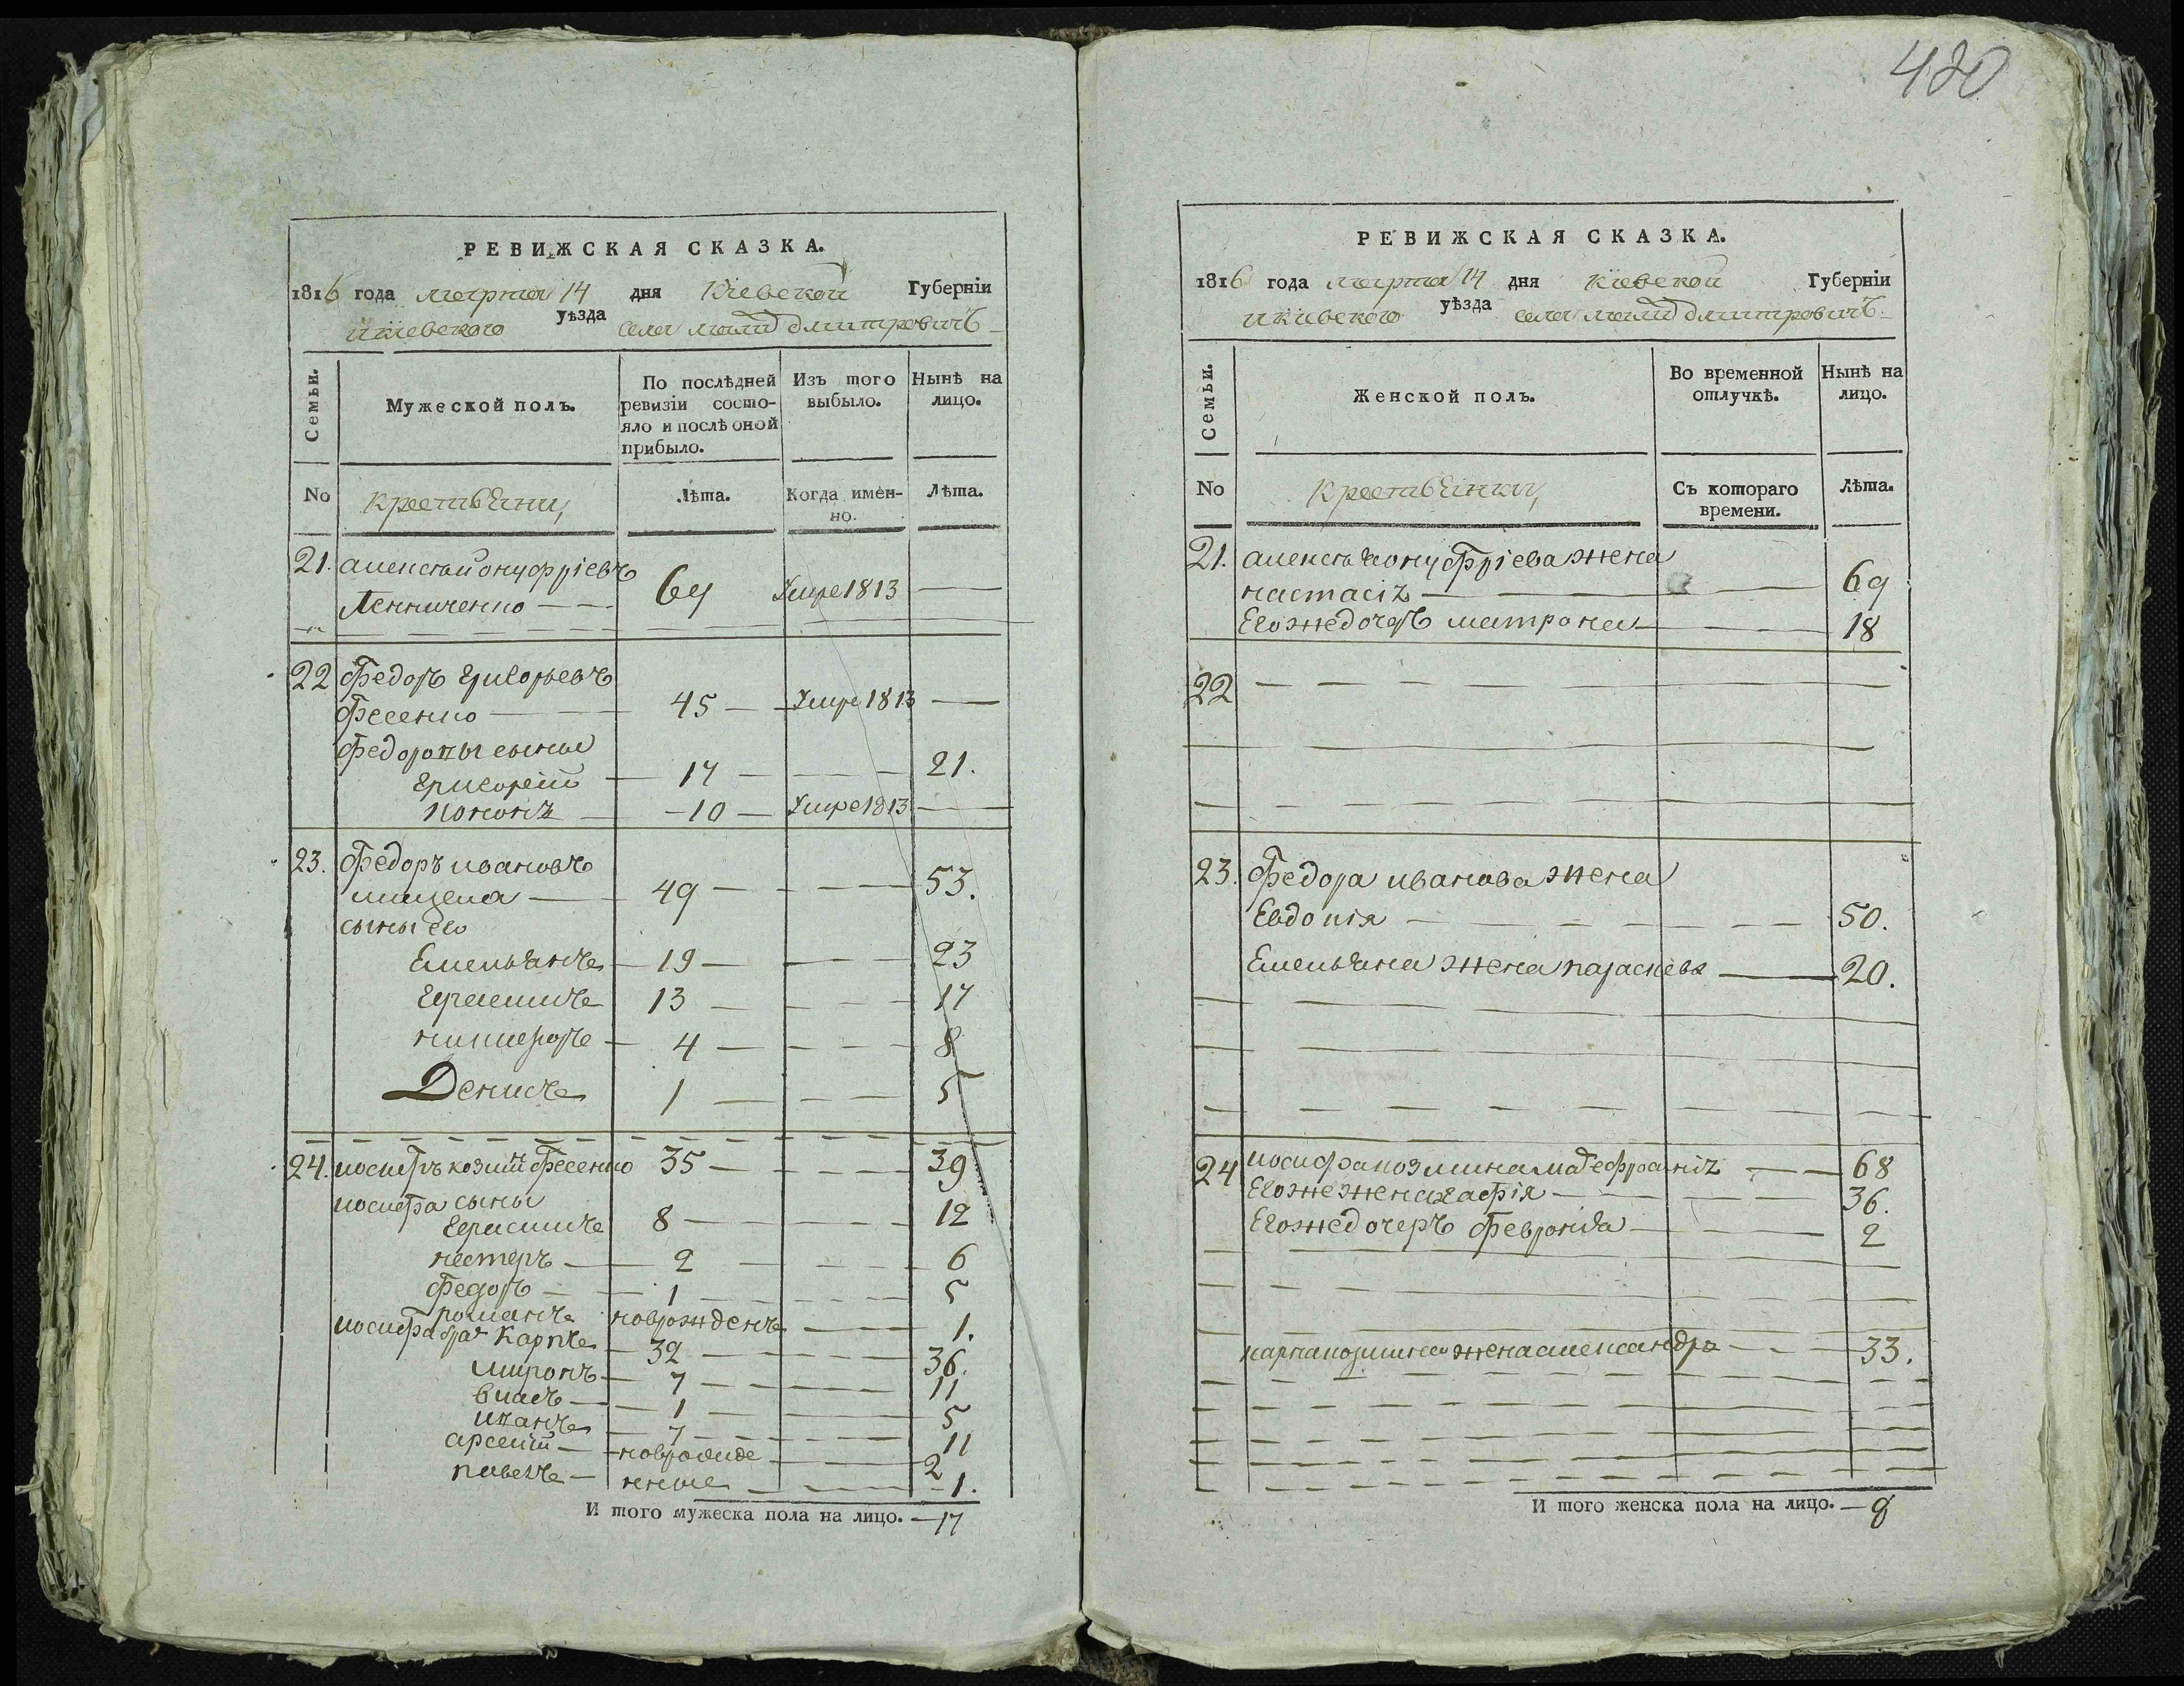 480
РЕВИЖСКАЯ СКАЗКА.
1816 года марта 14 дня Кіевской Губерніи
и кіевского уѣзда села малы дмитровичъ
Семьи.
Мужеской полъ.
По послѣдней ревизіи состо-
яло и послѣ оной
прибыло.
Изъ того
выбыло.
Нынѣ на
лицо.
No
Крестьяни,
Лѣта.
Когда имен-
но.
Лѣта.
21. алексѣй онуфріевъ
64 Умре 1813
22 Федоръ григорьевъ
Фесенко 45 Умре 1813
Федоровы сыны
григорей 17 21.
кононъ 10 Умре 1813
23. Федоръ ивановъ
мицела 49 53.
сыны его
Емельянъ 19 23
Герасимъ 13 17
никифоръ 4 8
Денисъ 1 5
24. иосифъ козмин Фесенко 35 39
иосифа сыны
Герасимъ 8 12
нестеръ 2 6
Федоръ 1 5
романъ новрожденъ 1.
иосифа брат Карпъ 32 36.
миронъ 7 11
власъ 1 5
иванъ 7 11
арсеній новрожде 2
павелъ нные 1.
И того мужеска пола на лицо. 17
РЕВИЖСКАЯ СКАЗКА.
1816 года марта 14 дня Кіевской Губерніи
и кіевского уѣзда села малы дмитровичъ
Семьи.
Женской полъ.
Во временной
отлучкѣ.
Нынѣ на
лицо.
No
Крестьянки,
Съ котораго
времени.
Лѣта.
21. алексѣя онуфріева жена
настасія 69
Его же дочеръ матрона 18
22
23. Федора иванова жена
Евдокія 50.
Емельяна жена параскева 20.
24 иосифа козмина мат ефросинія 68
Его же жена агафія 36.
Его же дочеръ Февронія 2
карпа козмина жена александра 33.
И того женска пола на лицо. 8